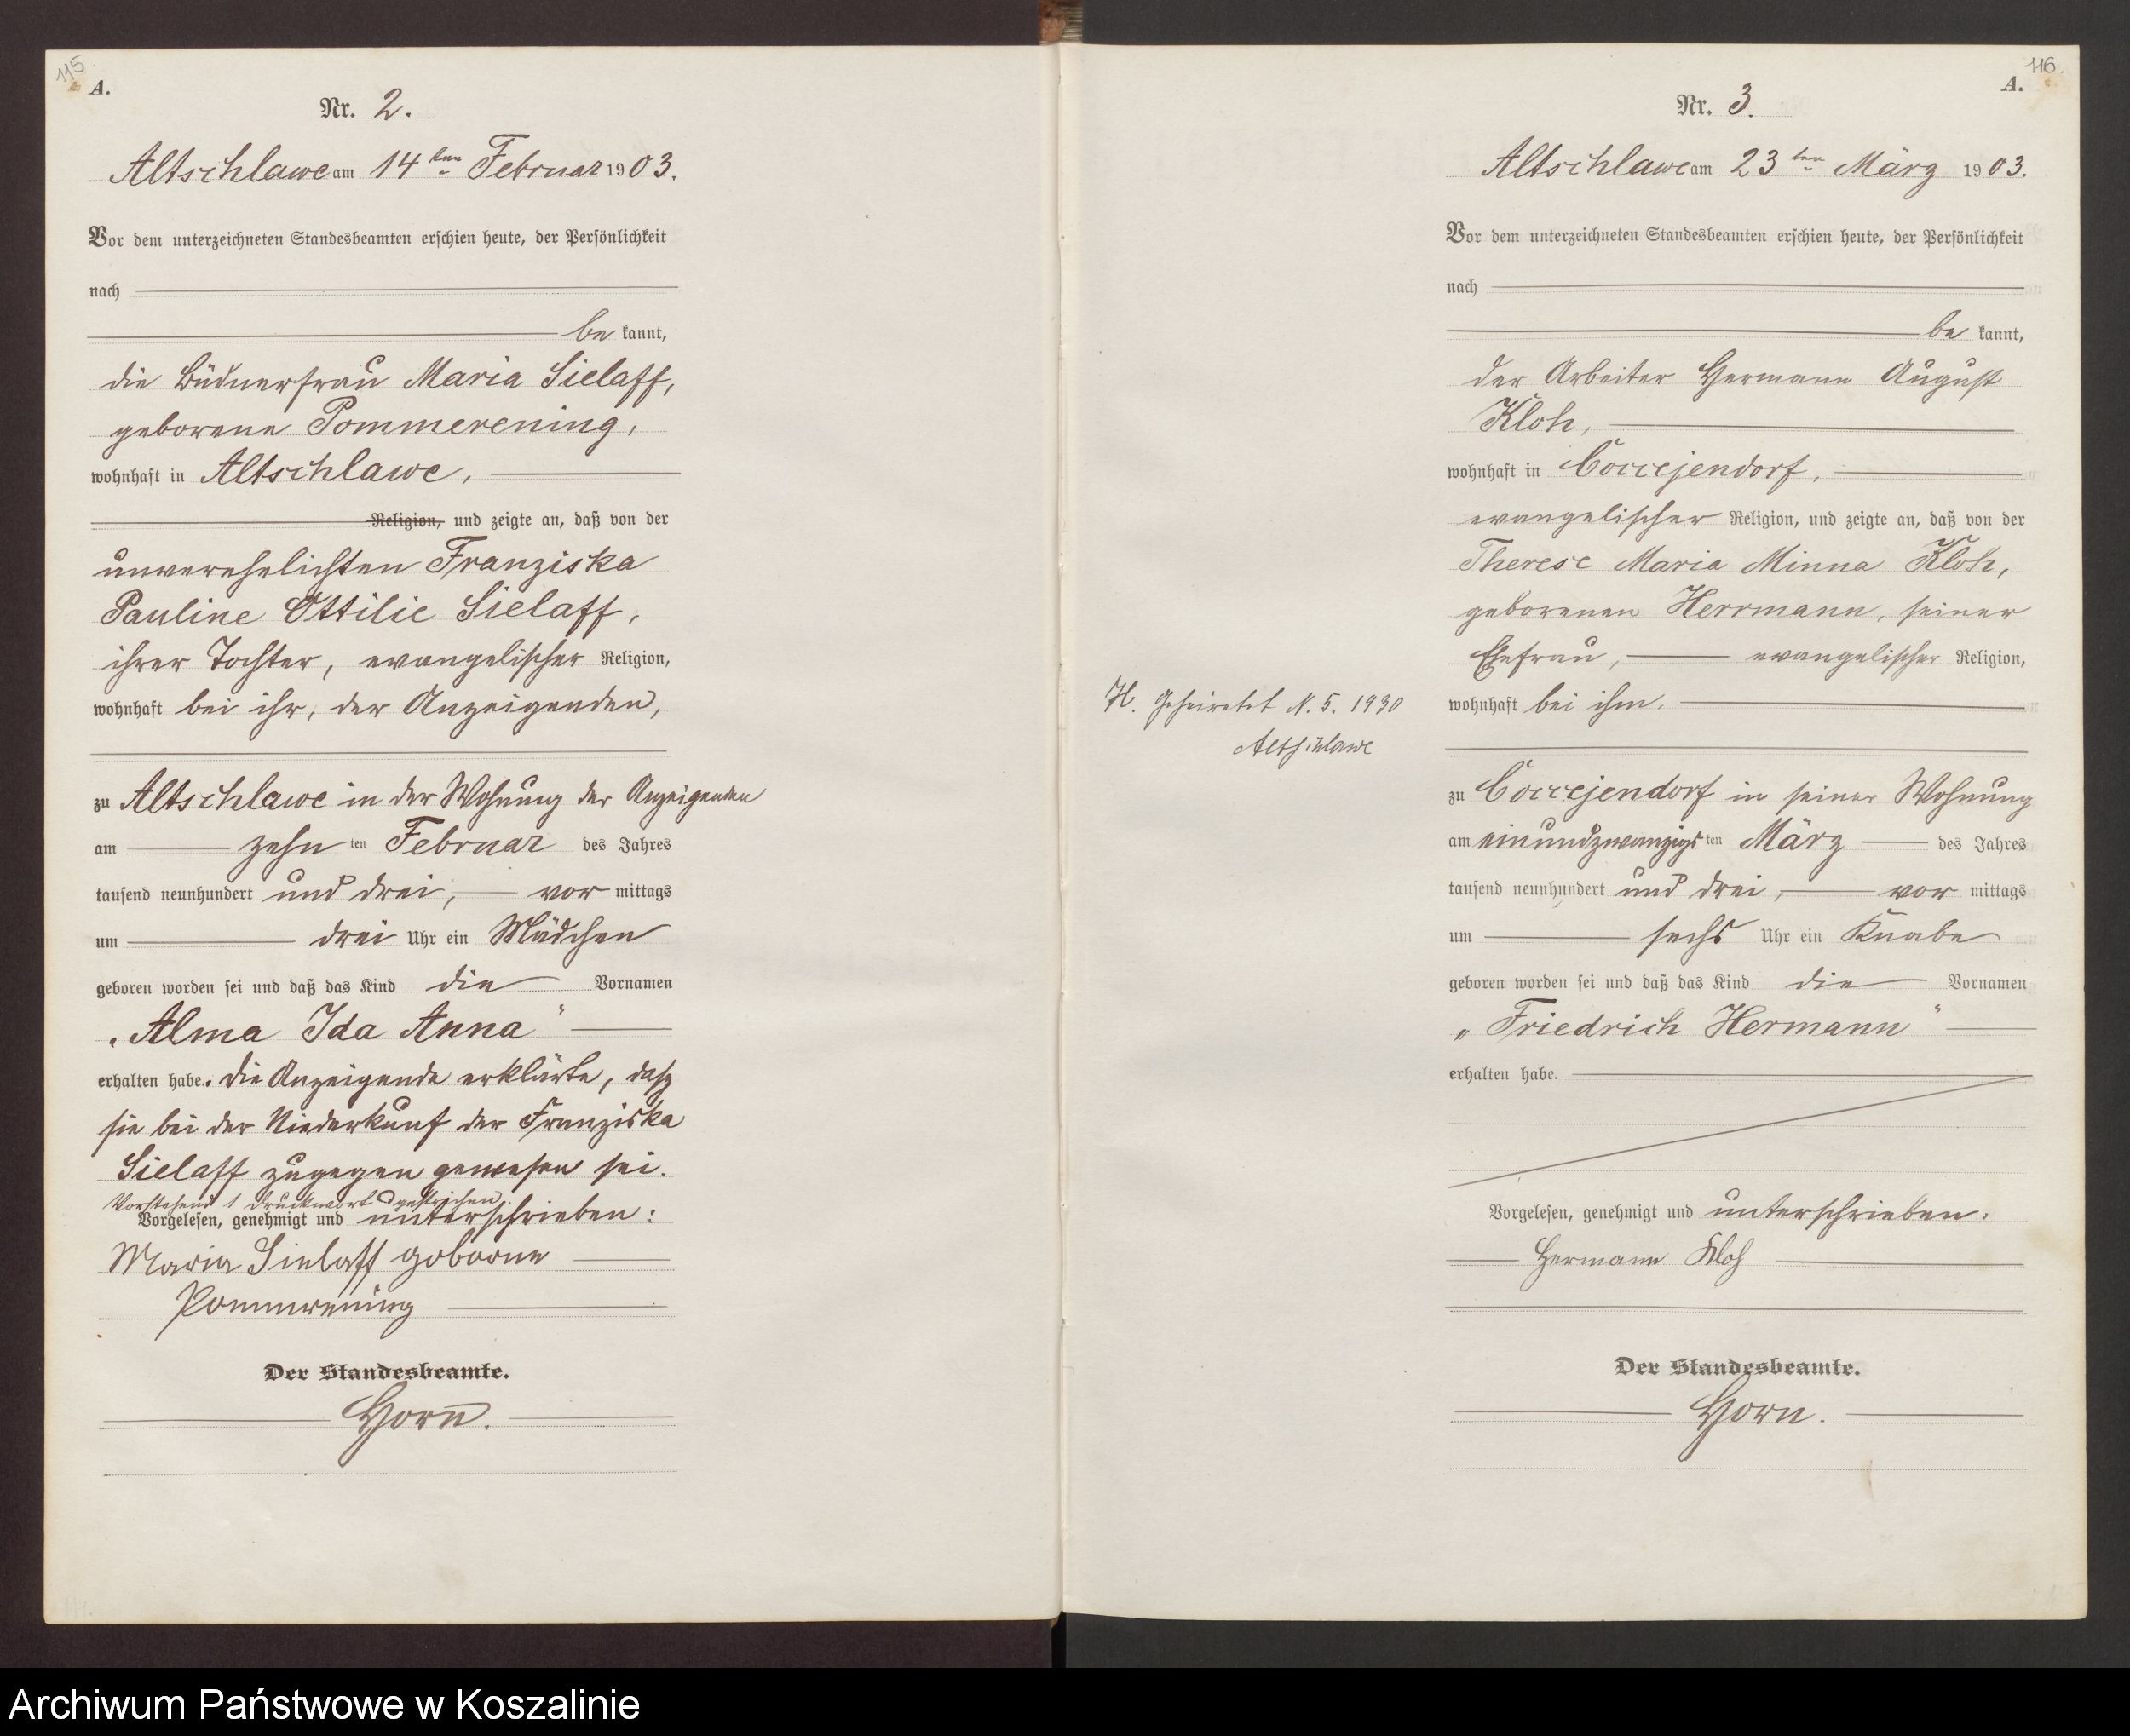 115
A.
Nr. 2.
Altschlawe am 14ten Februar 1903.
Vor dem unterzeichneten Standesbeamten erschien heute, der Persönlichkeit
nach
be kannt,
die Büdnerfrau Maria Sielaff,
geborene Pommerening,
wohnhaft in Altschlawe,
Religion, und zeigte an, daß von der
unverehelichten Franziska
Pauline Ottilie Sielaff,
ihrer Tochter, evangelischer Religion,
wohnhaft bei ihr, der Anzeigenden,
zu Altschlawe in der Wohnung der Anzeigenden
am zehn ten Februar des Jahres
tausend neunhundert und drei, vor mittags
um drei Uhr ein Mädchen
geboren worden sei und daß das Kind die Vornamen
„Alma Ida Anna“
erhalten habe. Die Anzeigende erklärte, daß
sie bei der Niederkunft der Franziska
Sielaff zugegen gewesen sei.
Vorstehend 1 Druckwort gestrichen.
Vorgelesen, genehmigt und unterschrieben:
Maria Sielaff geborne
Pommerening
Der Standesbeamte.
Horn.
116.
A.
Nr. 3.
Altschlawe am 23ten März 1903.
Vor dem unterzeichneten Standesbeamten erschien heute, der Persönlichkeit
nach
be kannt,
der Arbeiter Hermann August
Kloh,
wohnhaft in Coccejendorf,
evangelischer Religion, und zeigte an, daß von der
Therese Maria Minna Kloh,
geborenen Herrmann, seiner
Ehefrau, evangelischer Religion,
wohnhaft bei ihm.
zu Coccejendorf in seiner Wohnung
am einundzwanzigs ten März des Jahres
tausend neunhundert und drei, vor mittags
um sechs Uhr ein Knabe
geboren worden sei und daß das Kind die Vornamen
„Friedrich Hermann“
erhalten habe.
Vorgelesen, genehmigt und unterschrieben:
Hermann Kloh
Der Standesbeamte.
Horn.
H. Geheiratet N. 5. 1930
Altschlawe
Archiwum Państwowe w Koszalinie